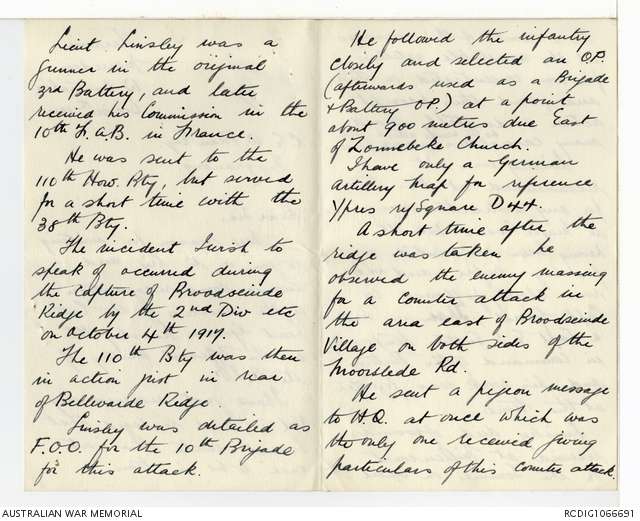 Lieut Linsley was a
gunner in the original
3rd Battery, and later
received his Commission in the
10th F.A.B. in France.
He was sent to the
110th How. Bty, but served
for a short time with the
38th Bty.
The incident I wish to
speak of occurred during
the capture of Broodseinde
Ridge by the 2nd Div etc
on October 4th 1917.
The 110th Bty was then
in action just in rear
of Bellewaarde Ridge.
Linsley was detailed as
F.O.O. for the 10th Brigade
for this attack.
He followed the infantry
closely and selected an O.P.
(afterwards used as a Brigade
& Battery O.P.) at a point
about 900 metres due East
of Zonnebeke Church.
I have only a German
artillery map for reference
Ypres ref Square D44.
A short time after the
ridge was taken he
observed the enemy massing
for a counter attack in
the area east of Broodseinde
Village on both sides of the
Moorslede Rd.
He sent a pigeon message
to H.Q. at once which was
the only one received giving
particulars of this counter attack.
AUSTRALIAN WAR MEMORIAL
RCDIG1066691